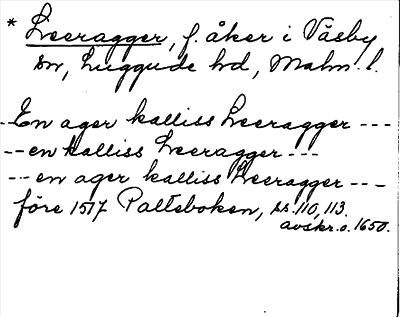 * Leeragger, f. åker i Väsby
sn, Luggude hd, Malm. l.
--En ager kalliss Leeragger ---
--en kalliss Leeragger ---
--en ager kalliss Leeragger ---
före 1517 Palteboken, ss. 110, 113.
avskr. o. 1650.